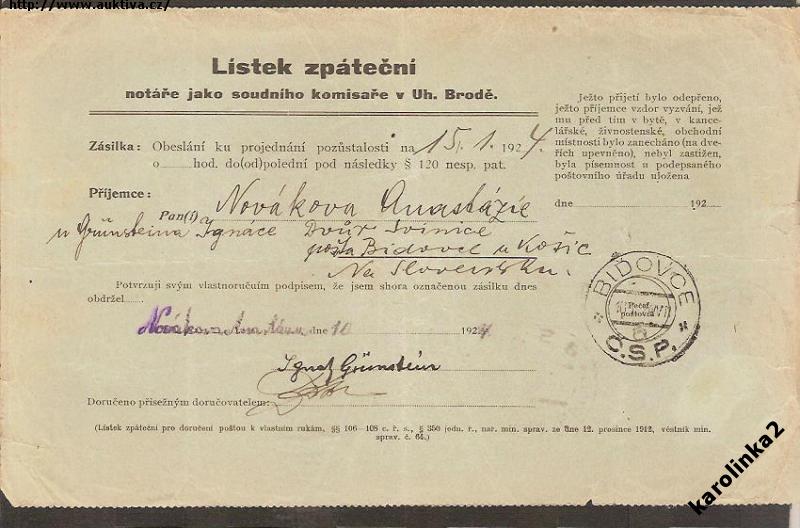 http://www.auktiva.cz/
Lístek zpáteční
notáře jako soudního komisaře v Uh. Brodě.
Zásilka: Obeslání ku projednání pozůstalosti na 15./1. 1924.
o hod. do(od)polední pod následky § 120 nesp. pat.
Příjemce:
Pan(í) Novákova Anastázie
u Grünsteina Ignáce Dvůr Svinice
pošta Bidovce u Košic
Na Slovensku.
Potvrzuji svým vlastnoručním podpisem, že jsem shora označenou zásilku dnes
obdržel
Novákova dne 10 1924
Ignatz Grünstein
Doručeno přísežným doručovatelem:
(Lístek zpáteční pro doručení poštou k vlastním rukám, §§ 106–108 c. ř. s., § 350 jedn. ř., nar. min. sprav. ze dne 12. prosince 1912, věstník min.
sprav. č. 64.)
Ježto přijetí bylo odepřeno,
ježto příjemce vzdor vyzvání, jež
mu před tím v bytě, v kance-
lářské, živnostenské, obchodní
místnosti bylo zanecháno (na dve-
řích upevněno), nebyl zastižen,
byla písemnost u podepsaného
poštovního úřadu uložena
dne 192
BIĎOVCE
Pečeť
poštovní
Č.S.P.
karolinka2